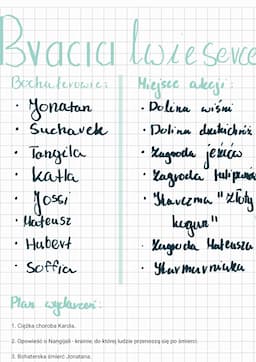 Bracia lwie serce
Bochaterowie:
Miejsce akcji:
· Jonatan
· Dolina wiśni
· Sucharek
· Dolina dzikich róż
· Tengila
· Zagroda jeźdźców
· Katla
· Zagroda tulipanów
· Jossi
· Karczma "Złoty
· Mateusz
kogut"
· Hubert
· Zagroda Mateusza
· Soffia
· Karmanjaka
Plan wydarzeń:
1. Ciężka choroba Karola.
2. Opowieść o Nangijali - krainie, do której ludzie przenoszą się po śmierci.
3. Bohaterska śmierć Jonatana.